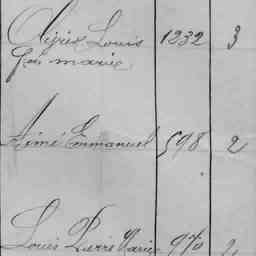 Alexis Louis 1232 3
Jn marie
Aimé Emmanuel 598 2
Louis Pierre Marie 970 2